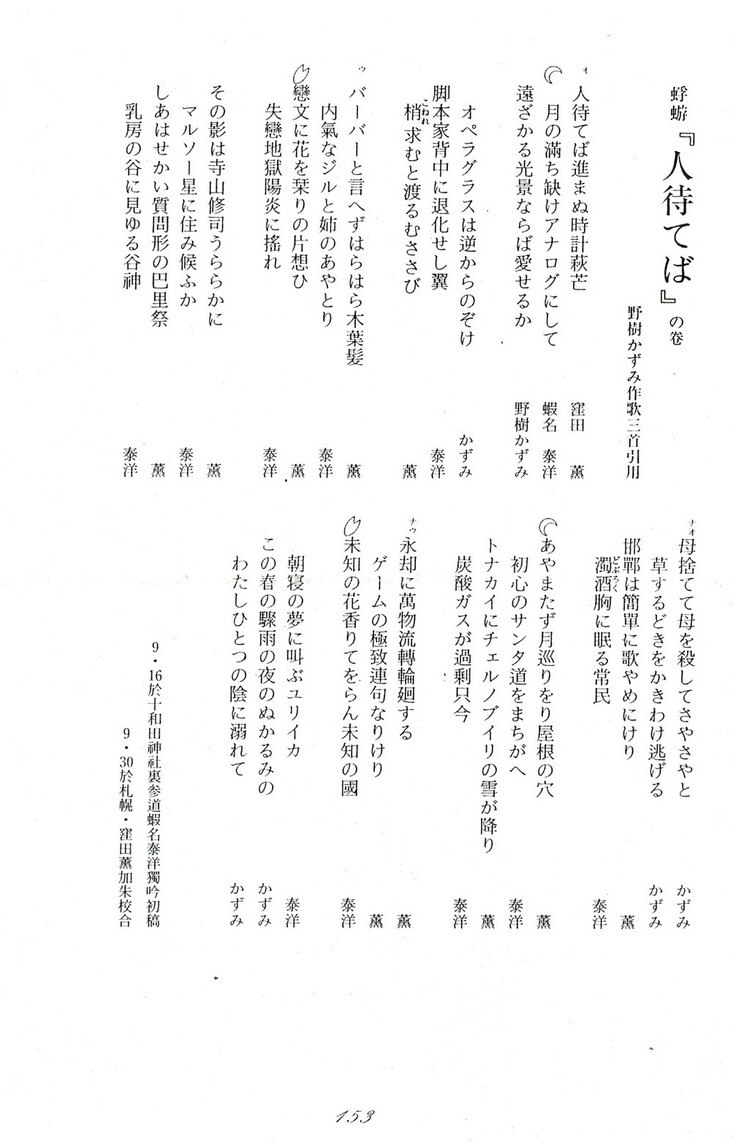 蜉蝣『人待てば』の卷
野樹かずみ作歌三首引用
オ
人待てば進まぬ時計萩芒 窪田 薫
月の滿ち缺けアナログにして 蝦名 泰洋
遠ざかる光景ならば愛せるか 野樹かずみ
オペラグラスは逆からのぞけ かずみ
脚本家背中に退化せし翼 泰洋
梢求むと渡るむささび 薫
こわれ
ウ
バーバーと言へずはらはら木葉髪 薫
内氣なジルと姉のあやとり 泰洋
戀文に花を栞りの片想ひ 薫
失戀地獄陽炎に搖れ 泰洋
その影は寺山修司うららかに 薫
マルソー星に住み候ふか 泰洋
しあはせかい質問形の巴里祭 薫
乳房の谷に見ゆる谷神 泰洋
ナオ
母捨てて母を殺してさやさやと かずみ
草するどきをかきわけ逃げる かずみ
邯鄲は簡單に歌やめにけり 薫
濁酒胸に眠る常民 泰洋
どぶろく
あやまたず月巡りをり屋根の穴 薫
初心のサンタ道をまちがへ 泰洋
トナカイにチェルノブイリの雪が降り 薫
炭酸ガスが過剩只今 泰洋
ナウ
永却に萬物流轉輪廻する 薫
ゲームの極致連句なりけり 薫
未知の花香りてをらん未知の國 泰洋
朝寝の夢に叫ぶユリイカ 泰洋
この春の驟雨の夜のぬかるみの かずみ
わたしひとつの陰に溺れて かずみ
9・16於十和田神社裏参道蝦名泰洋獨吟初稿
9・30於札幌・窪田薫加朱校合
153